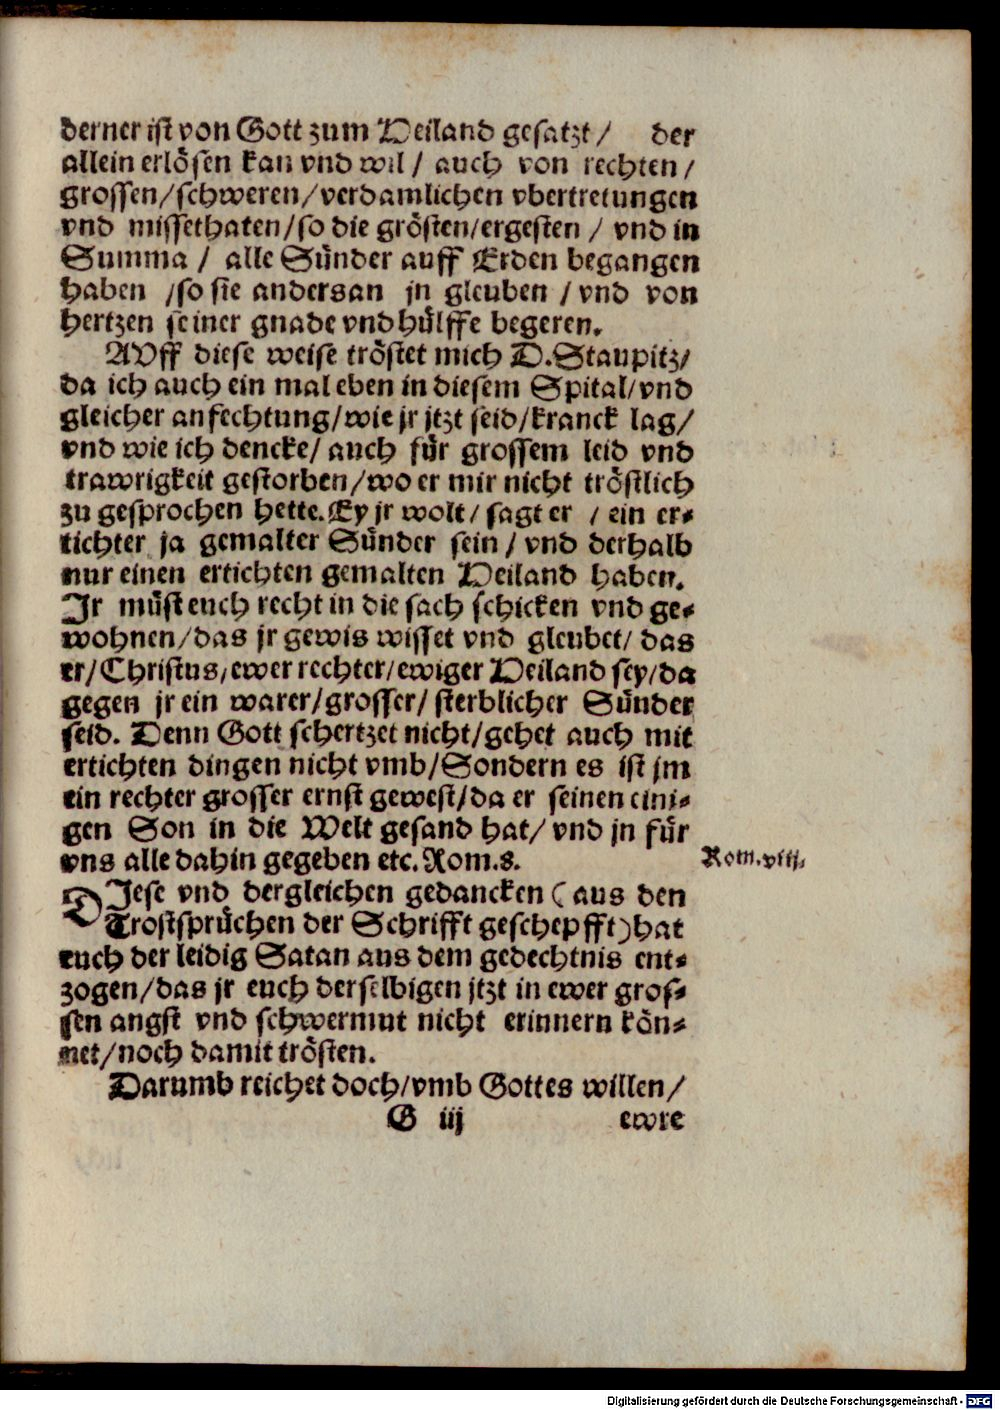 derner ist von Gott zum Heiland gesatzt / der
allein erlösen kan vnd wil / auch von rechten /
grossen / schweren / verdamlichen vbertretungen
vnd missethaten / so die grösten / ergesten / vnd in
Summa / alle Sünder auff Erden begangen
haben / so sie andersan jn gleuben / vnd von
hertzen seiner gnade vnd hülffe begeren.
AVff diese weise tröstet mich D. Staupitz /
da ich auch ein mal eben in diesem Spital / vnd
gleicher anfechtung / wie jr jtzt seid / kranck lag /
vnd wie ich dencke / auch für grossem leid vnd
trawrigkeit gestorben / wo er mir nicht tröstlich
zu gesprochen hette. Ey jr wolt / sagt er / ein er=
tichter ja gemalter Sünder sein / vnd derhalb
nur einen ertichten gemalten Heiland haben.
Jr müst euch recht in die sach schicken vnd ge=
wohnen / das jr gewis wisset vnd gleubet / das
er / Christus / ewer rechter / ewiger Heiland sey / da
gegen jr ein warer / grosser / sterblicher Sünder
seid. Denn Gott schertzet nicht / gehet auch mit
ertichten dingen nicht vmb / Sondern es ist jm
ein rechter grosser ernst gewest / da er seinen eini=
gen Son in die Welt gesand hat / vnd jn für
vns alle dahin gegeben etc. Rom. 8.
Rom. viij.
DJese vnd dergleichen gedancken (aus den
Trostsprüchen der Schrifft geschepfft) hat
euch der leidig Satan aus dem gedechtnis ent=
zogen / das jr euch derselbigen jtzt in ewer gros=
sen angst vnd schwermut nicht erinnern kön=
net / noch damit trösten.
Darumb reichet doch / vmb Gottes willen /
G iij ewre
Digitalisierung gefördert durch die Deutsche Forschungsgemeinschaft - DFG